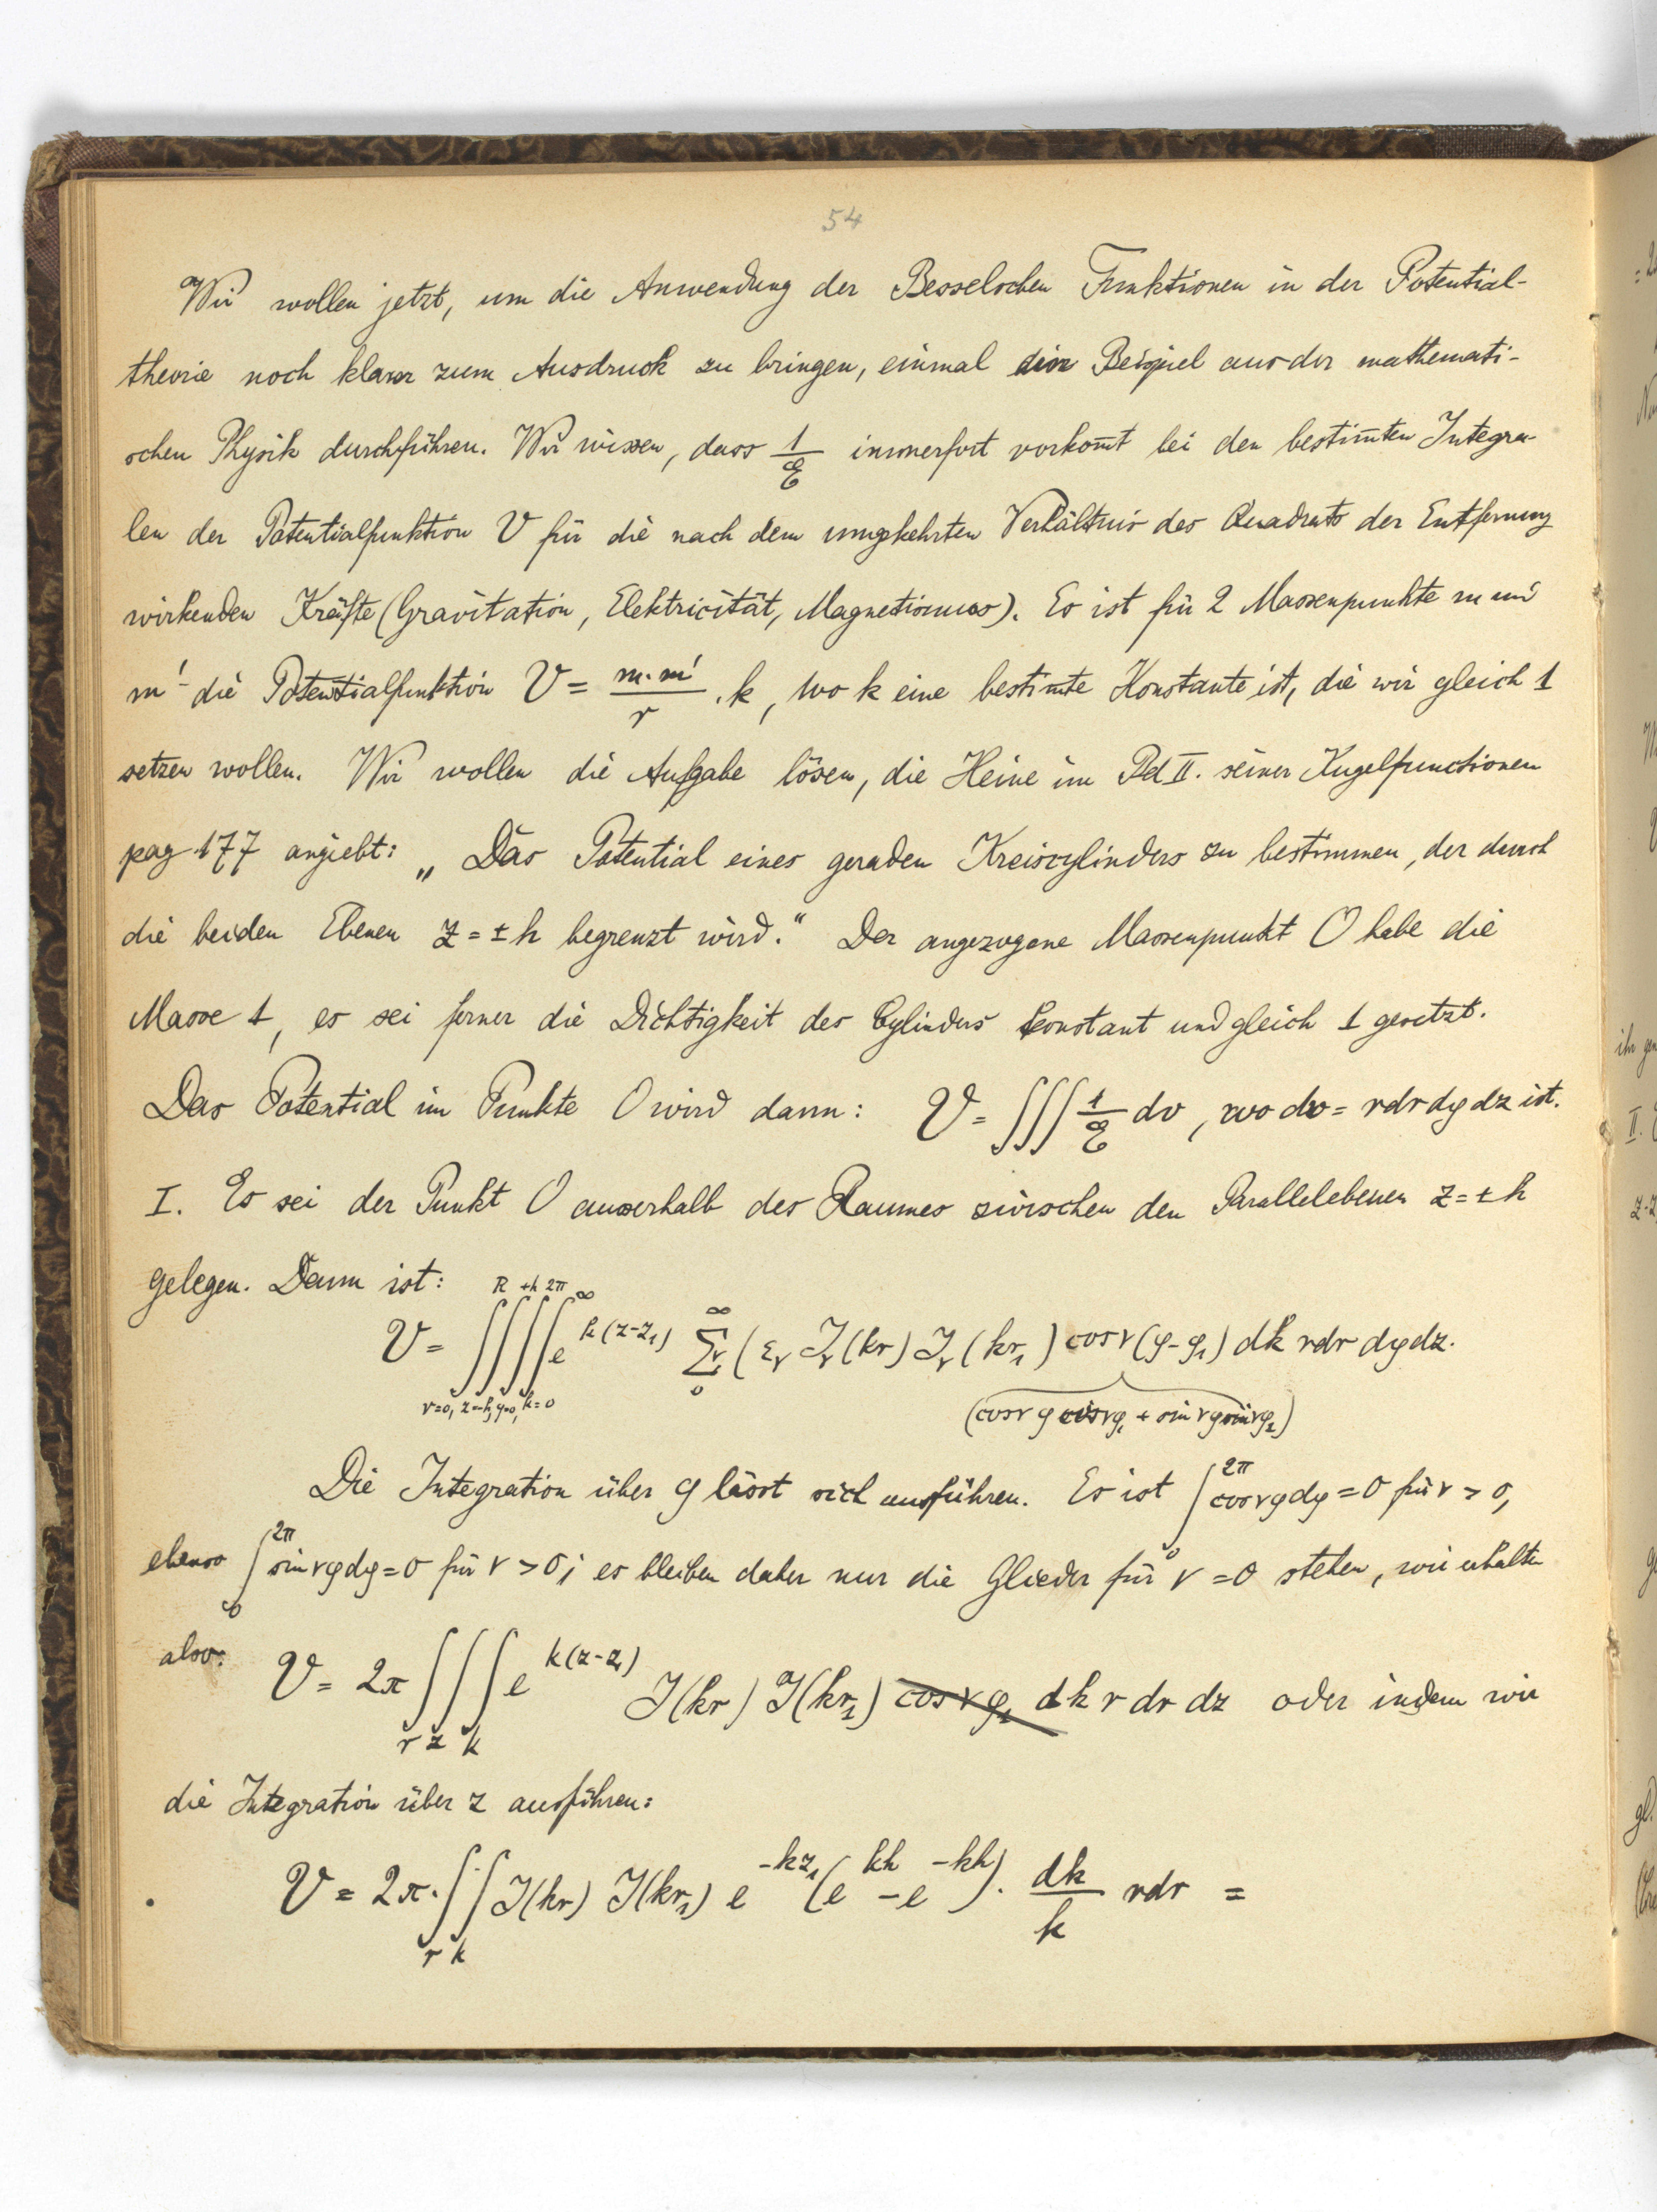 54
Wir wollen jetzt, um die Anwendung der Besselschen Funktionen in der Potential-
theorie noch klarer zum Ausdruck zu bringen, einmal ein Beispiel aus der mathemati-
schen Physik durchführen. Wir wissen, dass 1/E immerfort vorkom̅t bei den bestim̅ten Integra-
len der Potentialfunktion V für die nach dem umgekehrten Verhältnis des Quadrats der Entfernung
wirkenden Kräfte (Gravitation, Elektricität, Magnetismus). Es ist für 2 Massenpunkte m und
m' die Potentialfunktion V = m·m'/r · k, wo k eine bestim̅te Konstante ist, die wir gleich 1
setzen wollen. Wir wollen die Aufgabe lösen, die Heine im Bd II. seiner Kugelfunctionen
pag 177 angiebt: „Das Potential eines geraden Kreiscylinders zu bestimmen, der durch
die beiden Ebenen z = ± h begrenzt wird.“ Der angezogene Massenpunkt O habe die
Masse 1, es sei ferner die Dichtigkeit des Cylinders konstant und gleich 1 gesetzt.
Das Potential im Punkte O wird dann: V = ∫∫∫ 1/E dv, wo dv = rdrdφdz ist.
I. Es sei der Punkt O ausserhalb des Raumes zwischen den Parallelebenen z = ± h
gelegen. Dann ist: R +h 2π ∞
V = ∫∫∫∫ e^{k(z-z₁)} ∑_ν (ε_ν J_ν(kr) J_ν(kr₁) cos ν(φ-φ₁) dk rdr dφdz.
r=0, z=-h, φ=0, k=0 (cosνφ cosνφ₁ + sinνφ sinνφ₁)
Die Integration über φ lässt sich ausführen. Es ist ∫₀^{2π} cosνφdφ = 0 für ν > 0,
ebenso ∫₀^{2π} sinνφdφ = 0 für ν > 0; es bleiben daher nur die Glieder für ν = 0 stehen, wir erhalten
also: V = 2π ∫∫∫ e^{k(z-z₁)} J(kr) J(kr₁) cos ν φ₁ dk r dr dz oder indem wir
r z k
die Integration über z ausführen:
V = 2π·∫∫ J(kr) J(kr₁) e^{-kz₁} (e^{kh} - e^{-kh}) · dk/k rdr =
r k